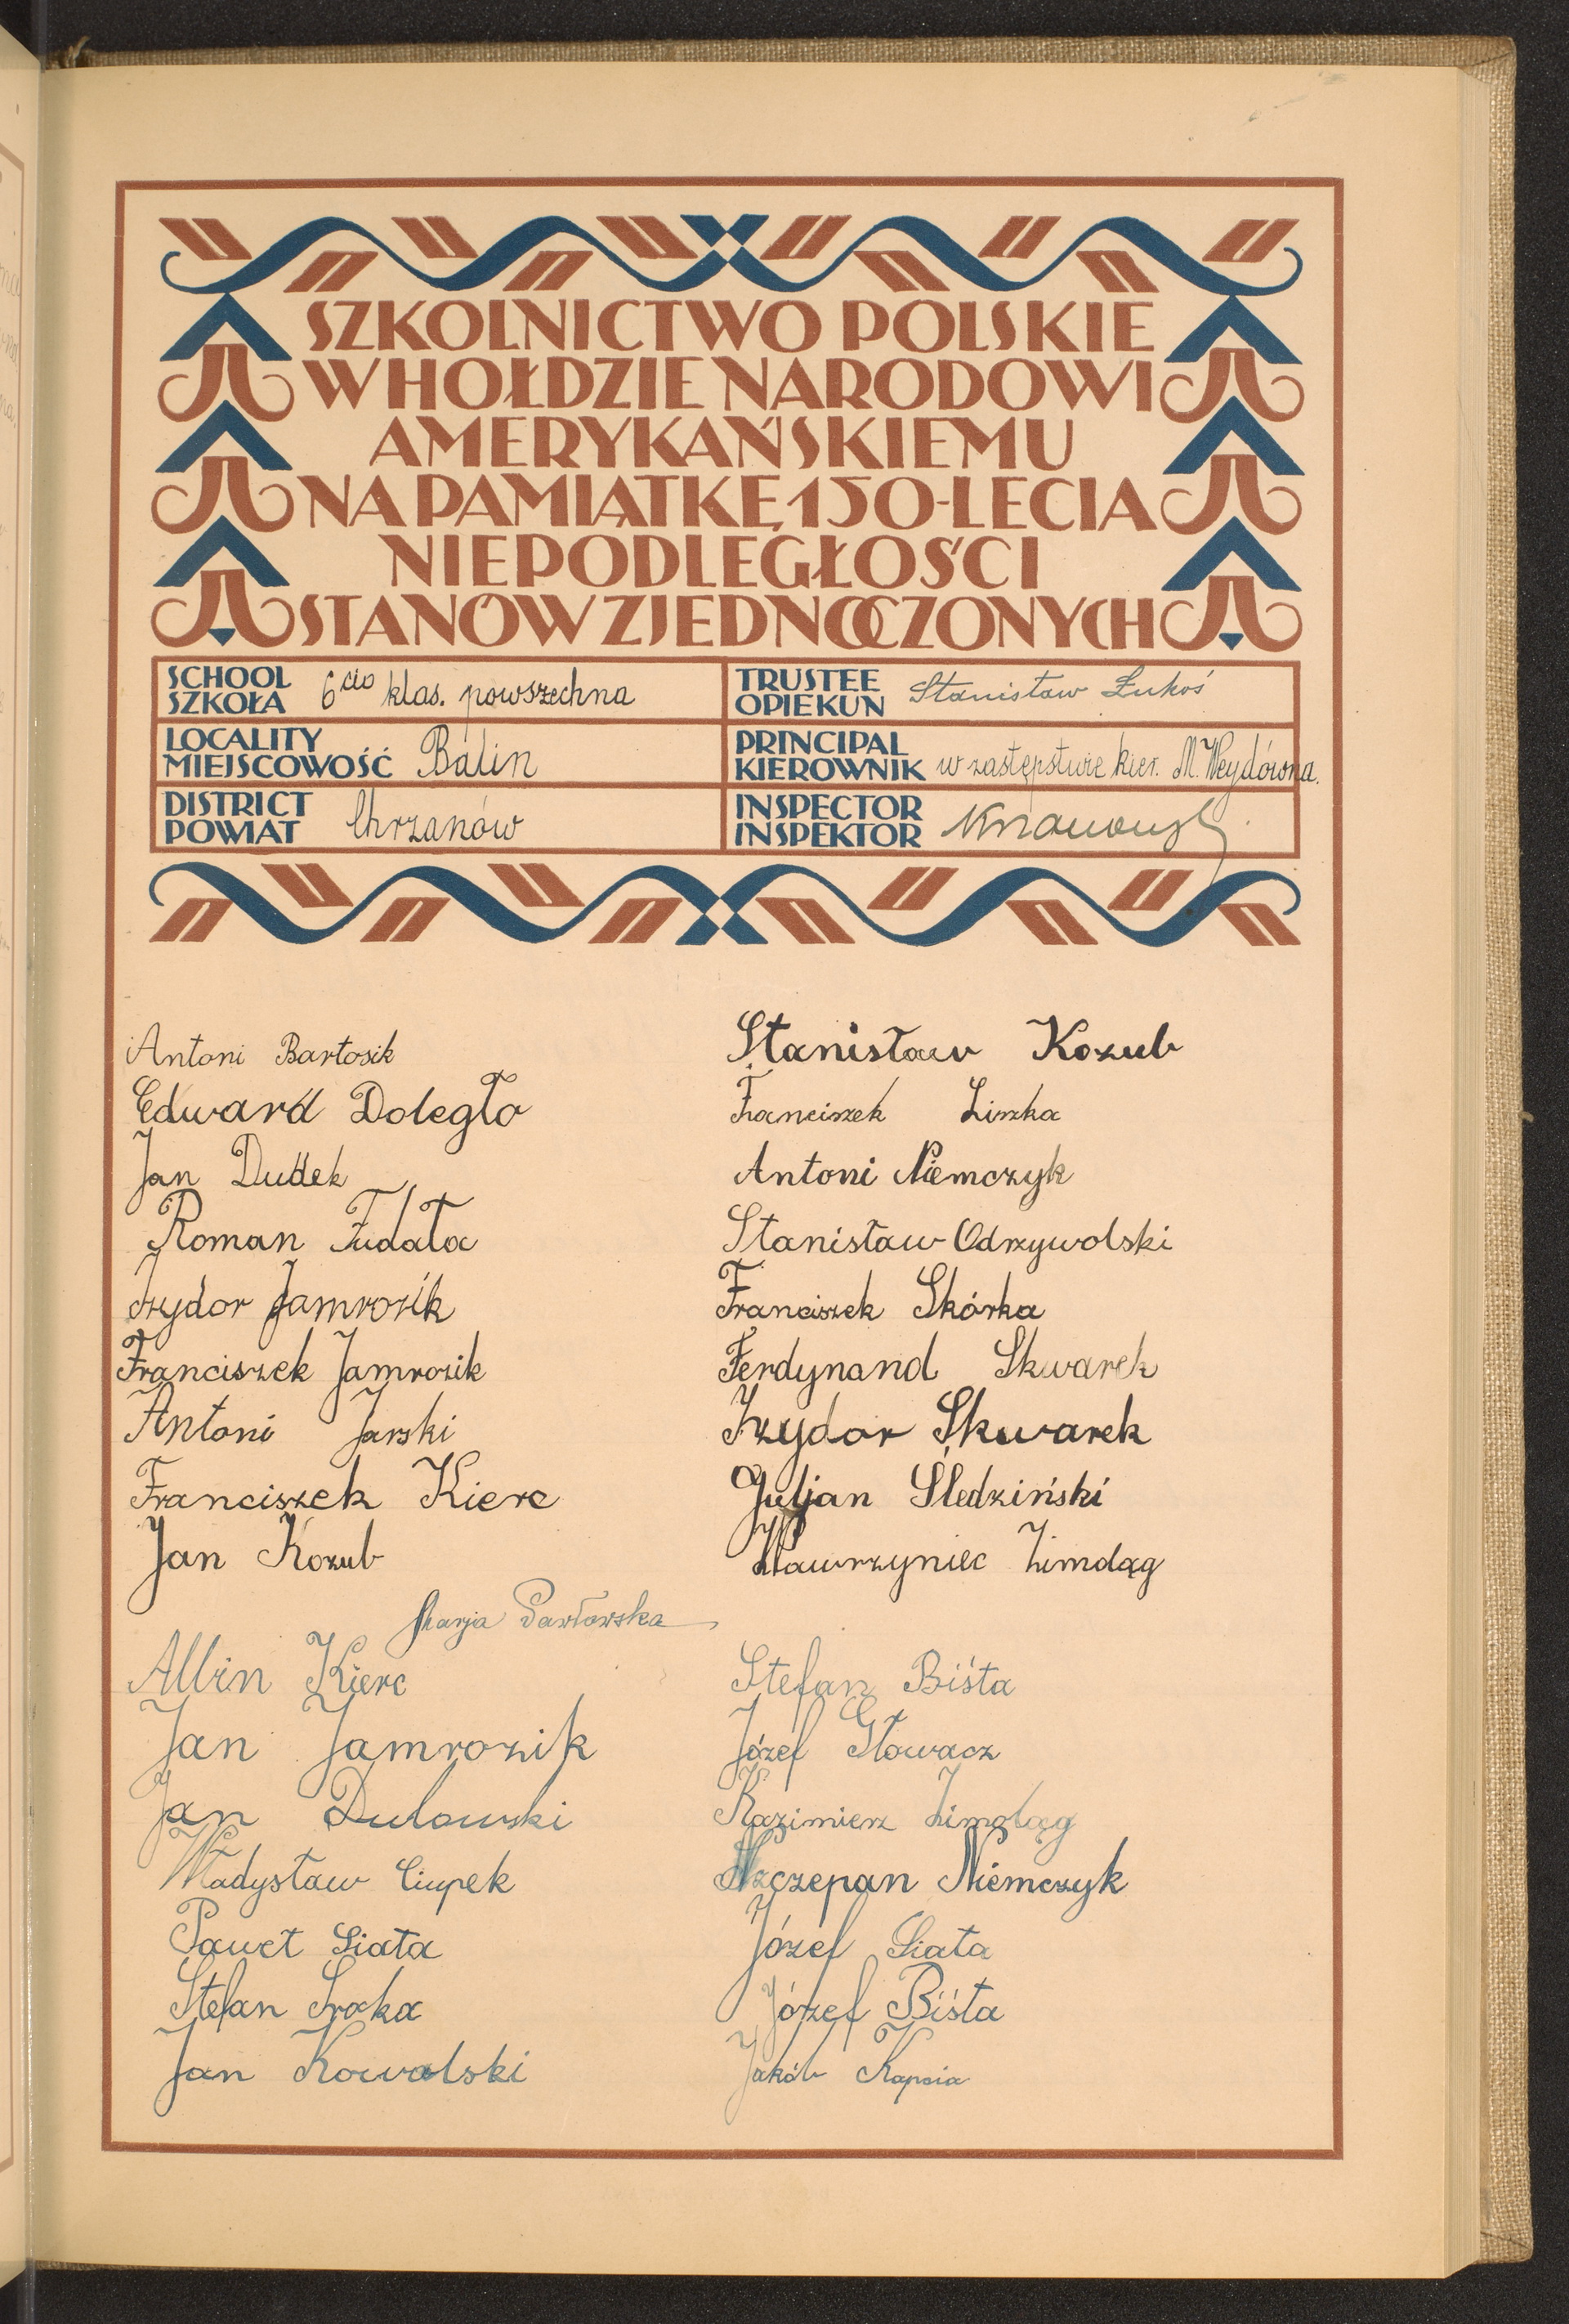 SZKOLNICTWO POLSKIE
W HOŁDZIE NARODOWI
AMERYKAŃSKIEMU
NA PAMIĄTKĘ 150-LECIA
NIEPODLEGŁOŚCI
STANÓW ZJEDNOCZONYCH
SCHOOL
SZKOŁA 6cio klas. powszechna
TRUSTEE
OPIEKUN Stanisław Łukoś
LOCALITY
MIEJSCOWOŚĆ Balin
PRINCIPAL
KIEROWNIK w zastępstwie kier. M. Weydówna.
DISTRICT
POWIAT Chrzanów
INSPECTOR
INSPEKTOR
Antoni Bartosik
Edward Doległo
Jan Dudek
Roman Fudała
Izydor Jamrozik
Franciszek Jamrozik
Antoni Jarski
Franciszek Kierc
Jan Kozub
Stanisław Kozub
Franciszek Liszka
Antoni Niemczyk
Stanisław Odrzywolski
Franciszek Skórka
Ferdynand Skwarek
Izydor Skwarek
Juljan Śledziński
Wawrzyniec Zimoląg
Marja Pawłowska
Albin Kierc
Jan Jamrozik
Jan Dulowski
Władysław Ciupek
Paweł Siata
Stefan Sroka
Jan Kowalski
Stefan Biśta
Józef Głowacz
Kazimierz Zimoląg
Szczepan Niemczyk
Józef Siata
Józef Biśta
Jakób Kapcia